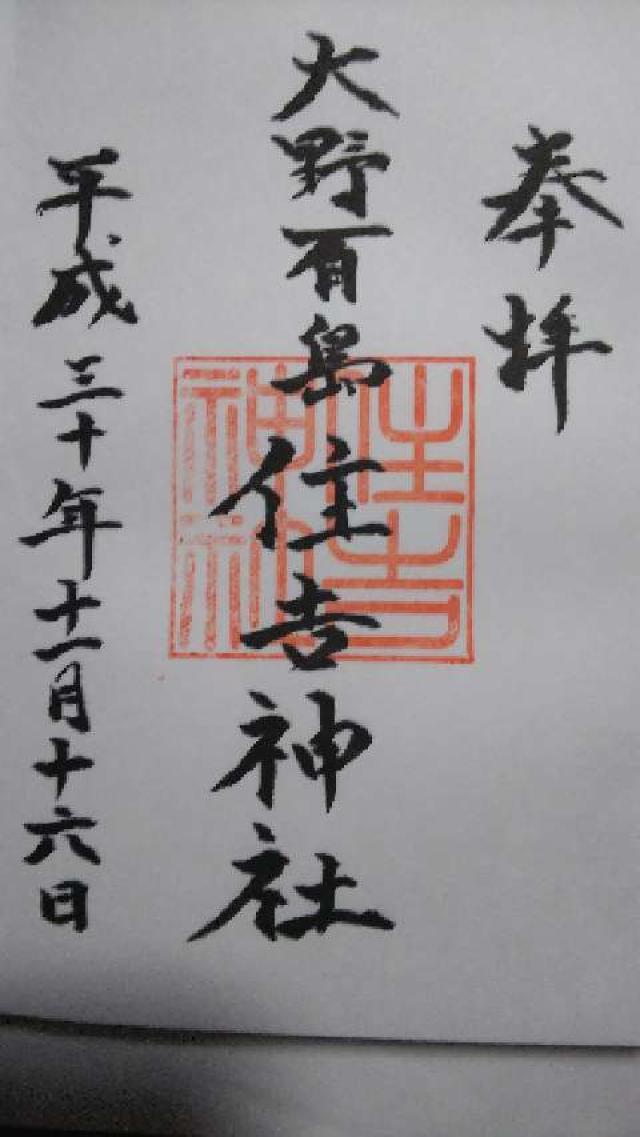 奉拝
大野有島住吉神社
住吉神社
平成三十年十一月十六日